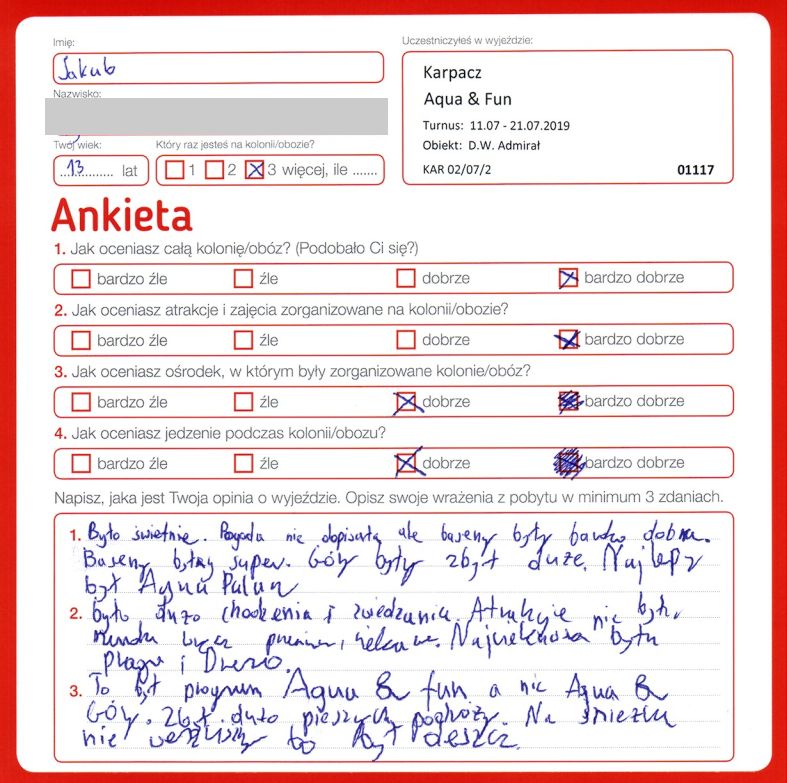 Imię:
Jakub
Nazwisko:
Uczestniczyłeś w wyjeździe:
Karpacz
Aqua & Fun
Turnus: 11.07 - 21.07.2019
Obiekt: D.W. Admirał
KAR 02/07/2 01117
Twój wiek:
13 lat
Który raz jesteś na kolonii/obozie?
1 2 3 więcej, ile .......
Ankieta
1. Jak oceniasz całą kolonię/obóz? (Podobało Ci się?)
bardzo źle źle dobrze bardzo dobrze
2. Jak oceniasz atrakcje i zajęcia zorganizowane na kolonii/obozie?
bardzo źle źle dobrze bardzo dobrze
3. Jak oceniasz ośrodek, w którym były zorganizowane kolonie/obóz?
bardzo źle źle dobrze bardzo dobrze
4. Jak oceniasz jedzenie podczas kolonii/obozu?
bardzo źle źle dobrze bardzo dobrze
Napisz, jaka jest Twoja opinia o wyjeździe. Opisz swoje wrażenia z pobytu w minimum 3 zdaniach.
1. Było świetnie. Pogoda nie dopisała ale baseny były bardzo dobre.
Baseny były super. Góry były zbyt duże. Najlepszy
był Aqua
2. było dużo chodzenia i zwiedzania. Atrakcje nie były
ciekawe. była
Praga i Drezno.
3. To był program Aqua & fun a nie Aqua &
Góry. Zbyt dużo pieszych podróży. Na śnieżkę
nie bo był deszcz.